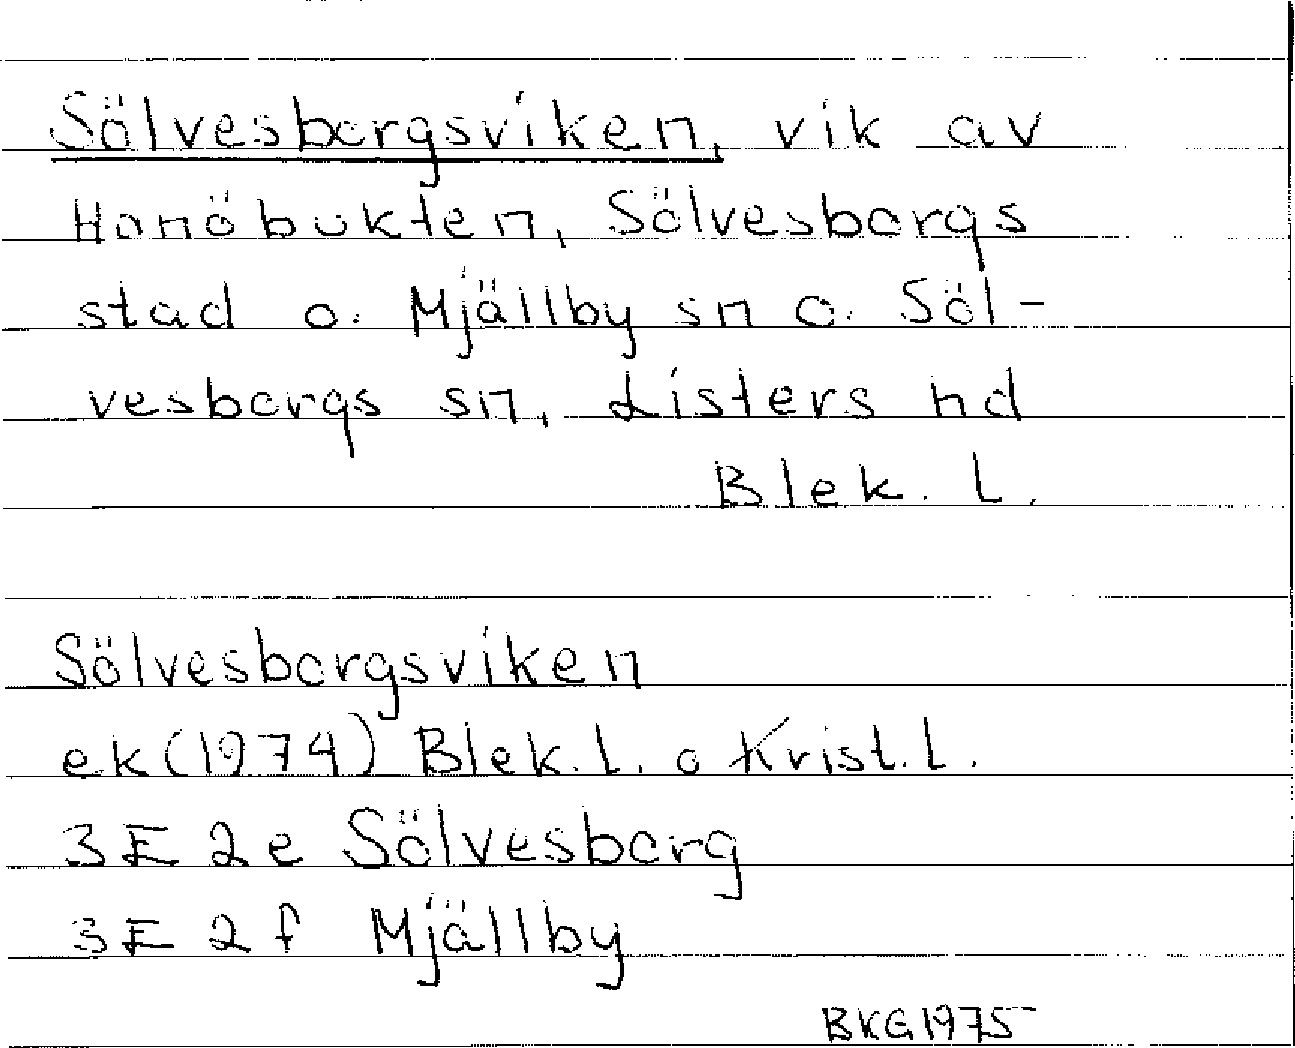 Sölvesborgsviken, vik av
Hanöbukten, Sölvesborgs
stad o. Mjällby sn o. Söl-
vesborgs sn, Listers hd
Blek. l.
Sölvesborgsviken
ek (1974) Blek. l. o Krist. l.
3E 2e Sölvesborg
3E 2f Mjällby
BKG 1975